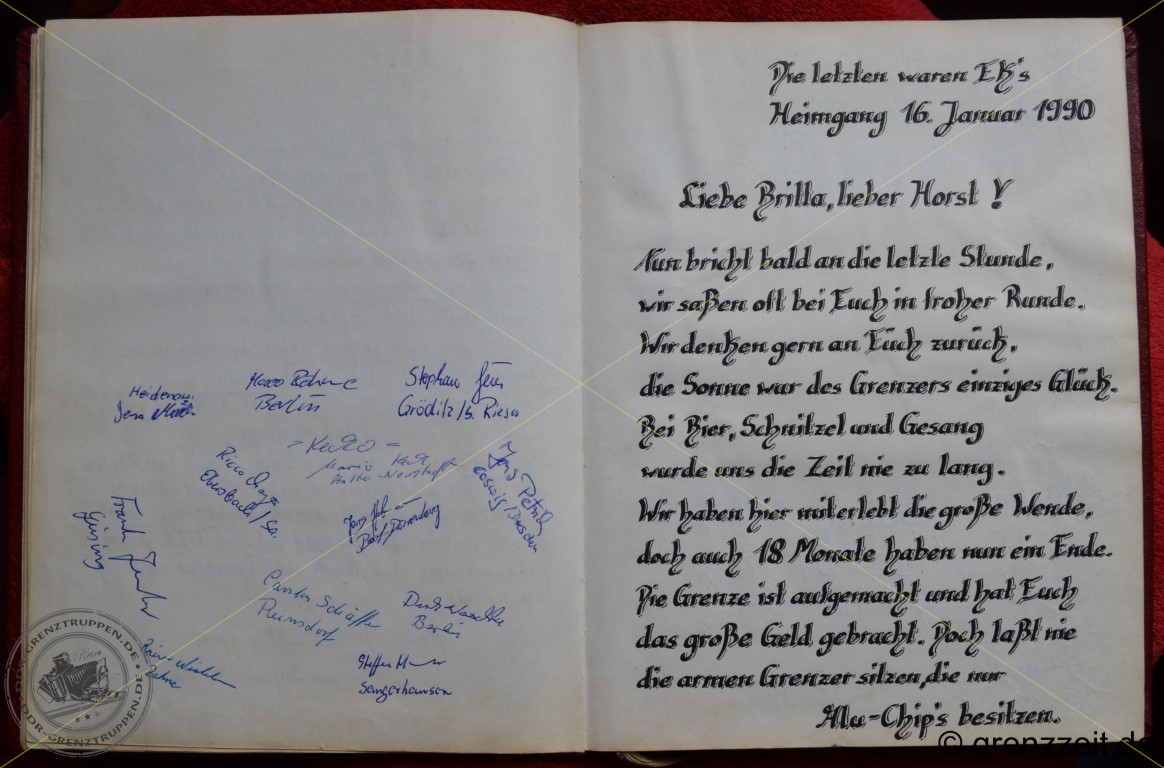 Heidenau
Jens
Marco
Berlin
Stephan Jens
Gröditz/b. Riesa
- Keule -
Mario Keule
Ricco
Jörg Petrich
Coswig/Dresden
Frank
Jens
Carsten Schäffer
Reinsdorf
Dirk
Berlin
Steffen
Sangerhausen
DDR-GRENZTRUPPEN.DE
DDR-GRENZTRUPPEN.DE
Die letzten waren EK's
Heimgang 16. Januar 1990
Liebe Britta, lieber Horst !
Nun bricht bald an die letzte Stunde,
wir saßen oft bei Euch in froher Runde.
Wir denken gern an Euch zurück,
die Sonne war des Grenzers einziges Glück.
Bei Bier, Schnitzel und Gesang
wurde uns die Zeit nie zu lang.
Wir haben hier miterlebt die große Wende,
doch auch 18 Monate haben nun ein Ende.
Die Grenze ist aufgemacht und hat Euch
das große Geld gebracht. Doch laßt nie
die armen Grenzer sitzen, die nur
Alu-Chip's besitzen.
© grenzzeit.de